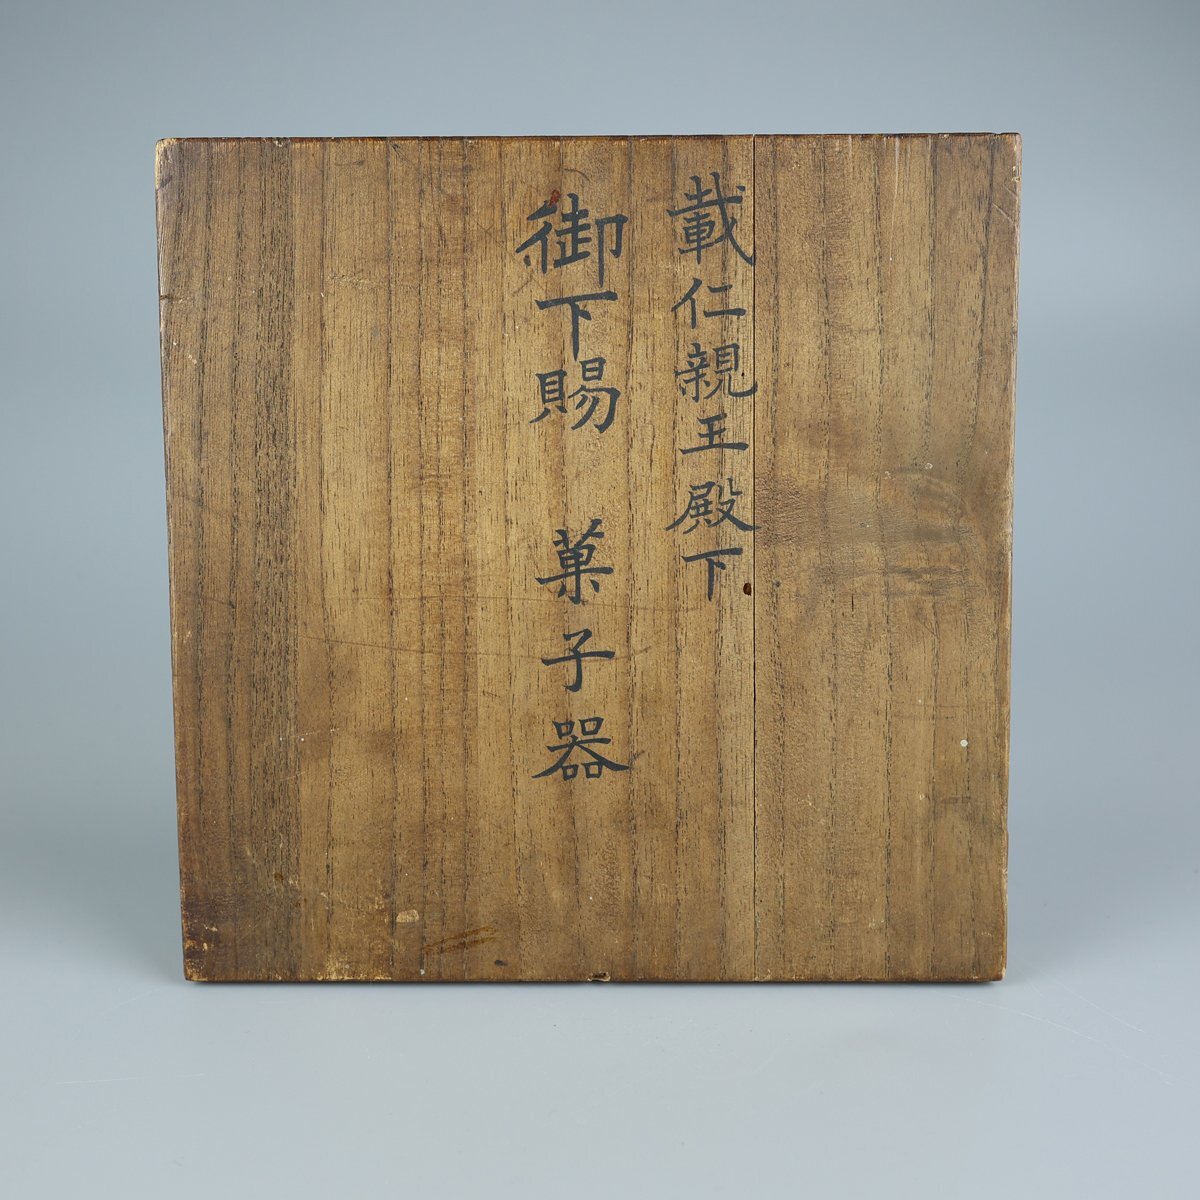 載仁親王殿下
御下賜 菓子器